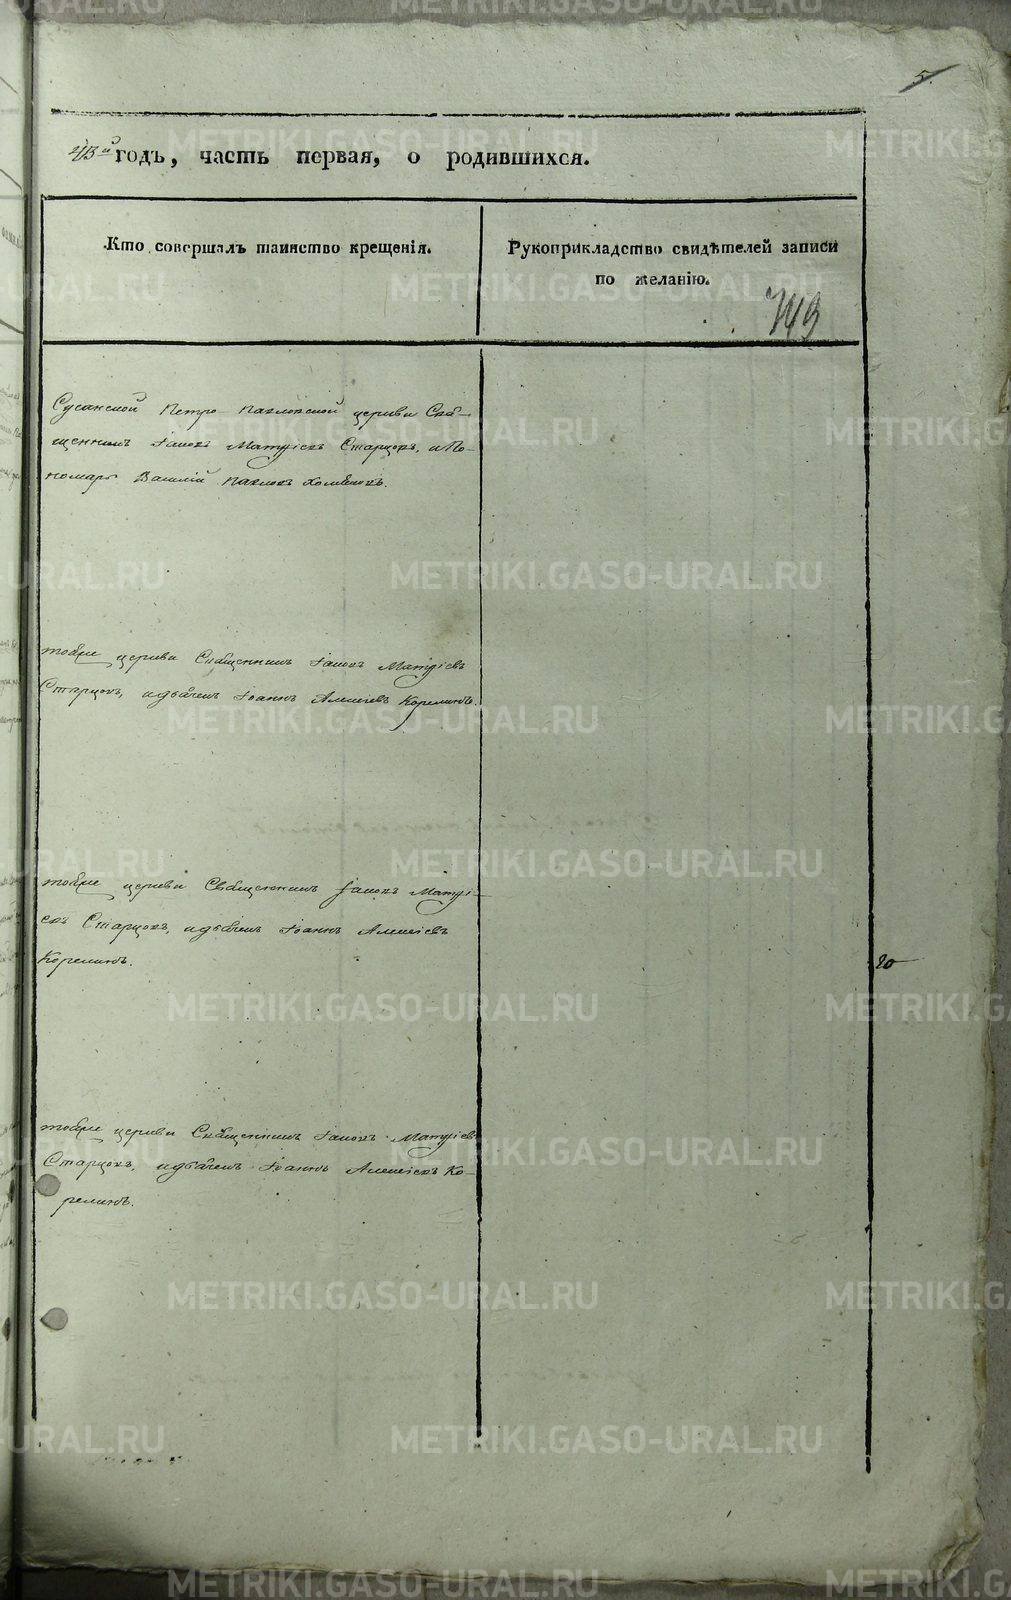 5.
43й годъ, часть первая, о родившихся.
Кто совершалъ таинство крещенія.
Рукоприкладство свидѣтелей записи
по желанію.
749
Сусанской Петро Павловской церкви Свя-
щенникъ Іаковъ Матѳіевъ Старцовъ, и По-
номарь Василій Павловъ
тойже церкви Священникъ Іаковъ Матѳіевъ
Старцовъ, и дьячекъ Іоаннъ Алексіевъ Корелинъ.
тойже церкви Священникъ Іаковъ Матѳі-
евъ Старцовъ, и дьячекъ Іоаннъ Алексіевъ
Корелинъ.
20
тойже церкви Священникъ Іаковъ Матѳіевъ
Старцовъ, и дьячекъ Іоаннъ Алексіевъ Ко-
релинъ.
METRIKI.GASO-URAL.RU